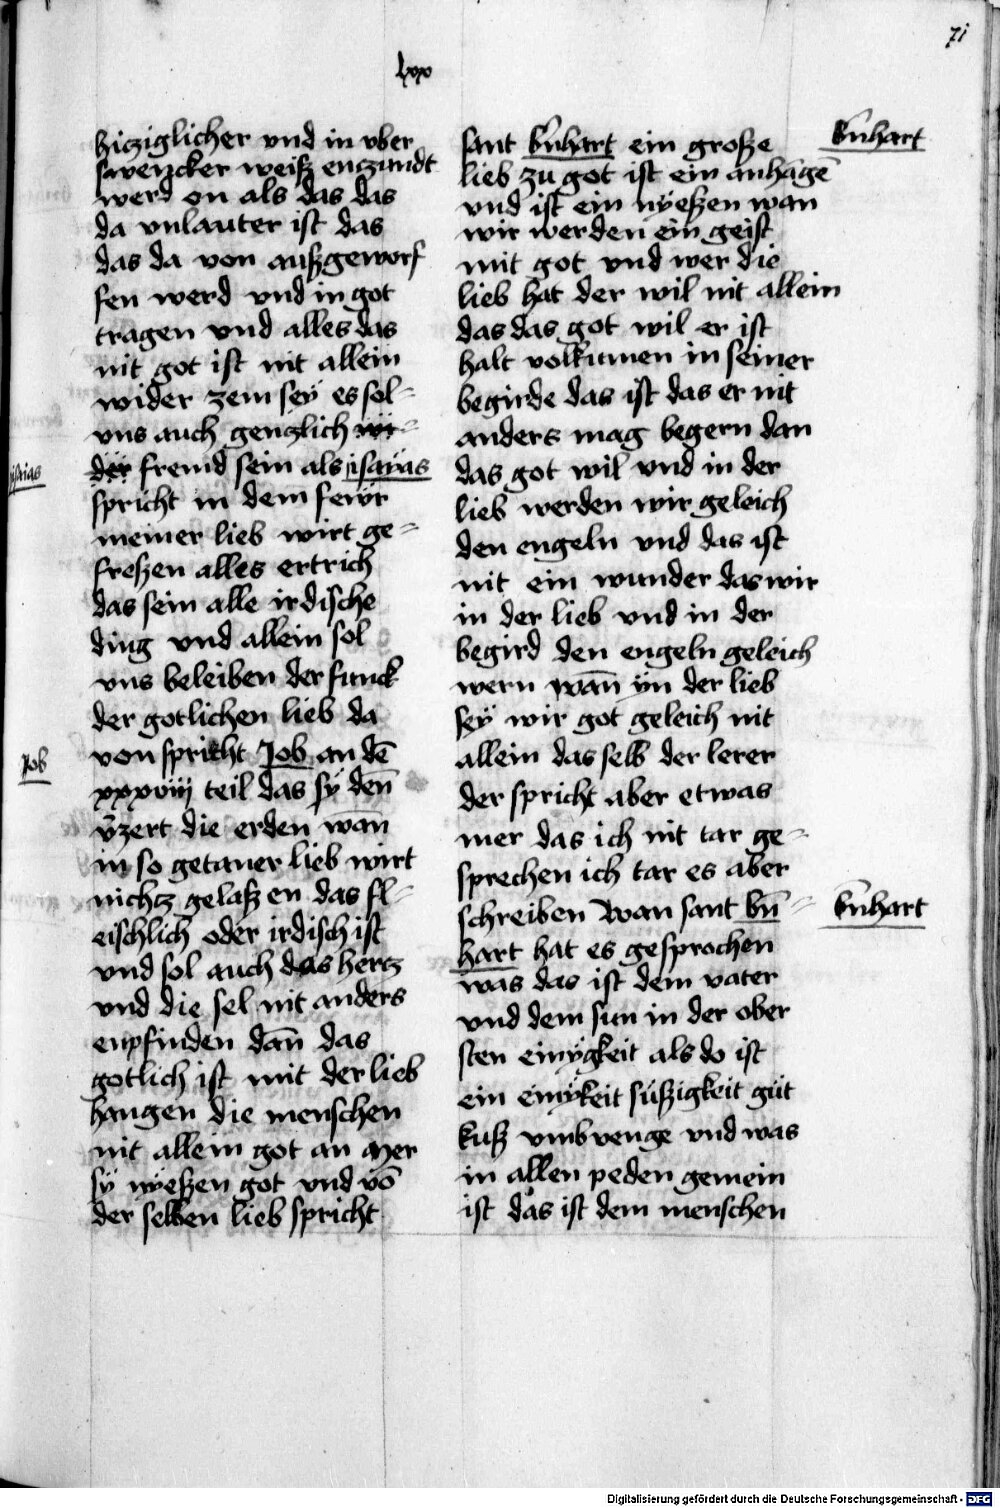 71
lxx
hicziglicher vnd in vber
swencker weisz enczundt
werd on als das das
da vnlauter ist das
das da von auszgeworf
fen werd vnd in got
tragen vnd alles das
nit got ist nit allein
wider zem seÿ es sol=
vns auch genczlich wi=
der fremd sein als ÿsayas
spricht in dem fewr
meiner lieb wirt ge=
freszen alles ertrich
das sein alle irdische
ding vnd allein sol
vns beleiben der funck
der gotlichen lieb da
von spricht Job an dē
xxxviij teil das sÿ den̄
v̈zert die erden wan̄
in so getaner lieb wirt
nichtz gelaszen das fl=
eischlich oder irdisch ist
vnd sol auch das hertz
vnd die sel nit anders
enpfinden dan̄ das
gotlich ist mit der lieb
hangen die menschen
nit allein got an mer
sÿ nÿeszen got vnd vō
der selben lieb spricht
ysaias
Job
sant bn̄hart ein grosze
lieb zu got ist ein anhāgē
vnd ist ein nÿeszen wan
wir werden ein geist
mit got vnd wer die
lieb hat der wil nit allein
das das got wil er ist
halt volkumen in seiner
begirde das ist das er nit
anders mag begern dan
das got wil vnd in der
lieb werden wir geleich
den engeln vnd das ist
nit ein wunder das wir
in der lieb vnd in der
begird den engeln geleich
wern wan̄ ÿn der lieb
seÿ wir got geleich nit
allein das selb der lerer
der spricht aber etwas
mer das ich nit tar ge=
sprechen ich tar es aber
schreiben wan sant bn̄=
hart hat es gesprochen
was das ist dem vater
vnd dem sun in der ober
sten einÿgkeit als do ist
ein einÿkeit süszigkeit güt
kusz vmbvenge vnd was
in allen peden gemein
ist das ist dem menschen
bn̄hart
bn̄hart
Digitalisierung gefördert durch die Deutsche Forschungsgemeinschaft - DFG